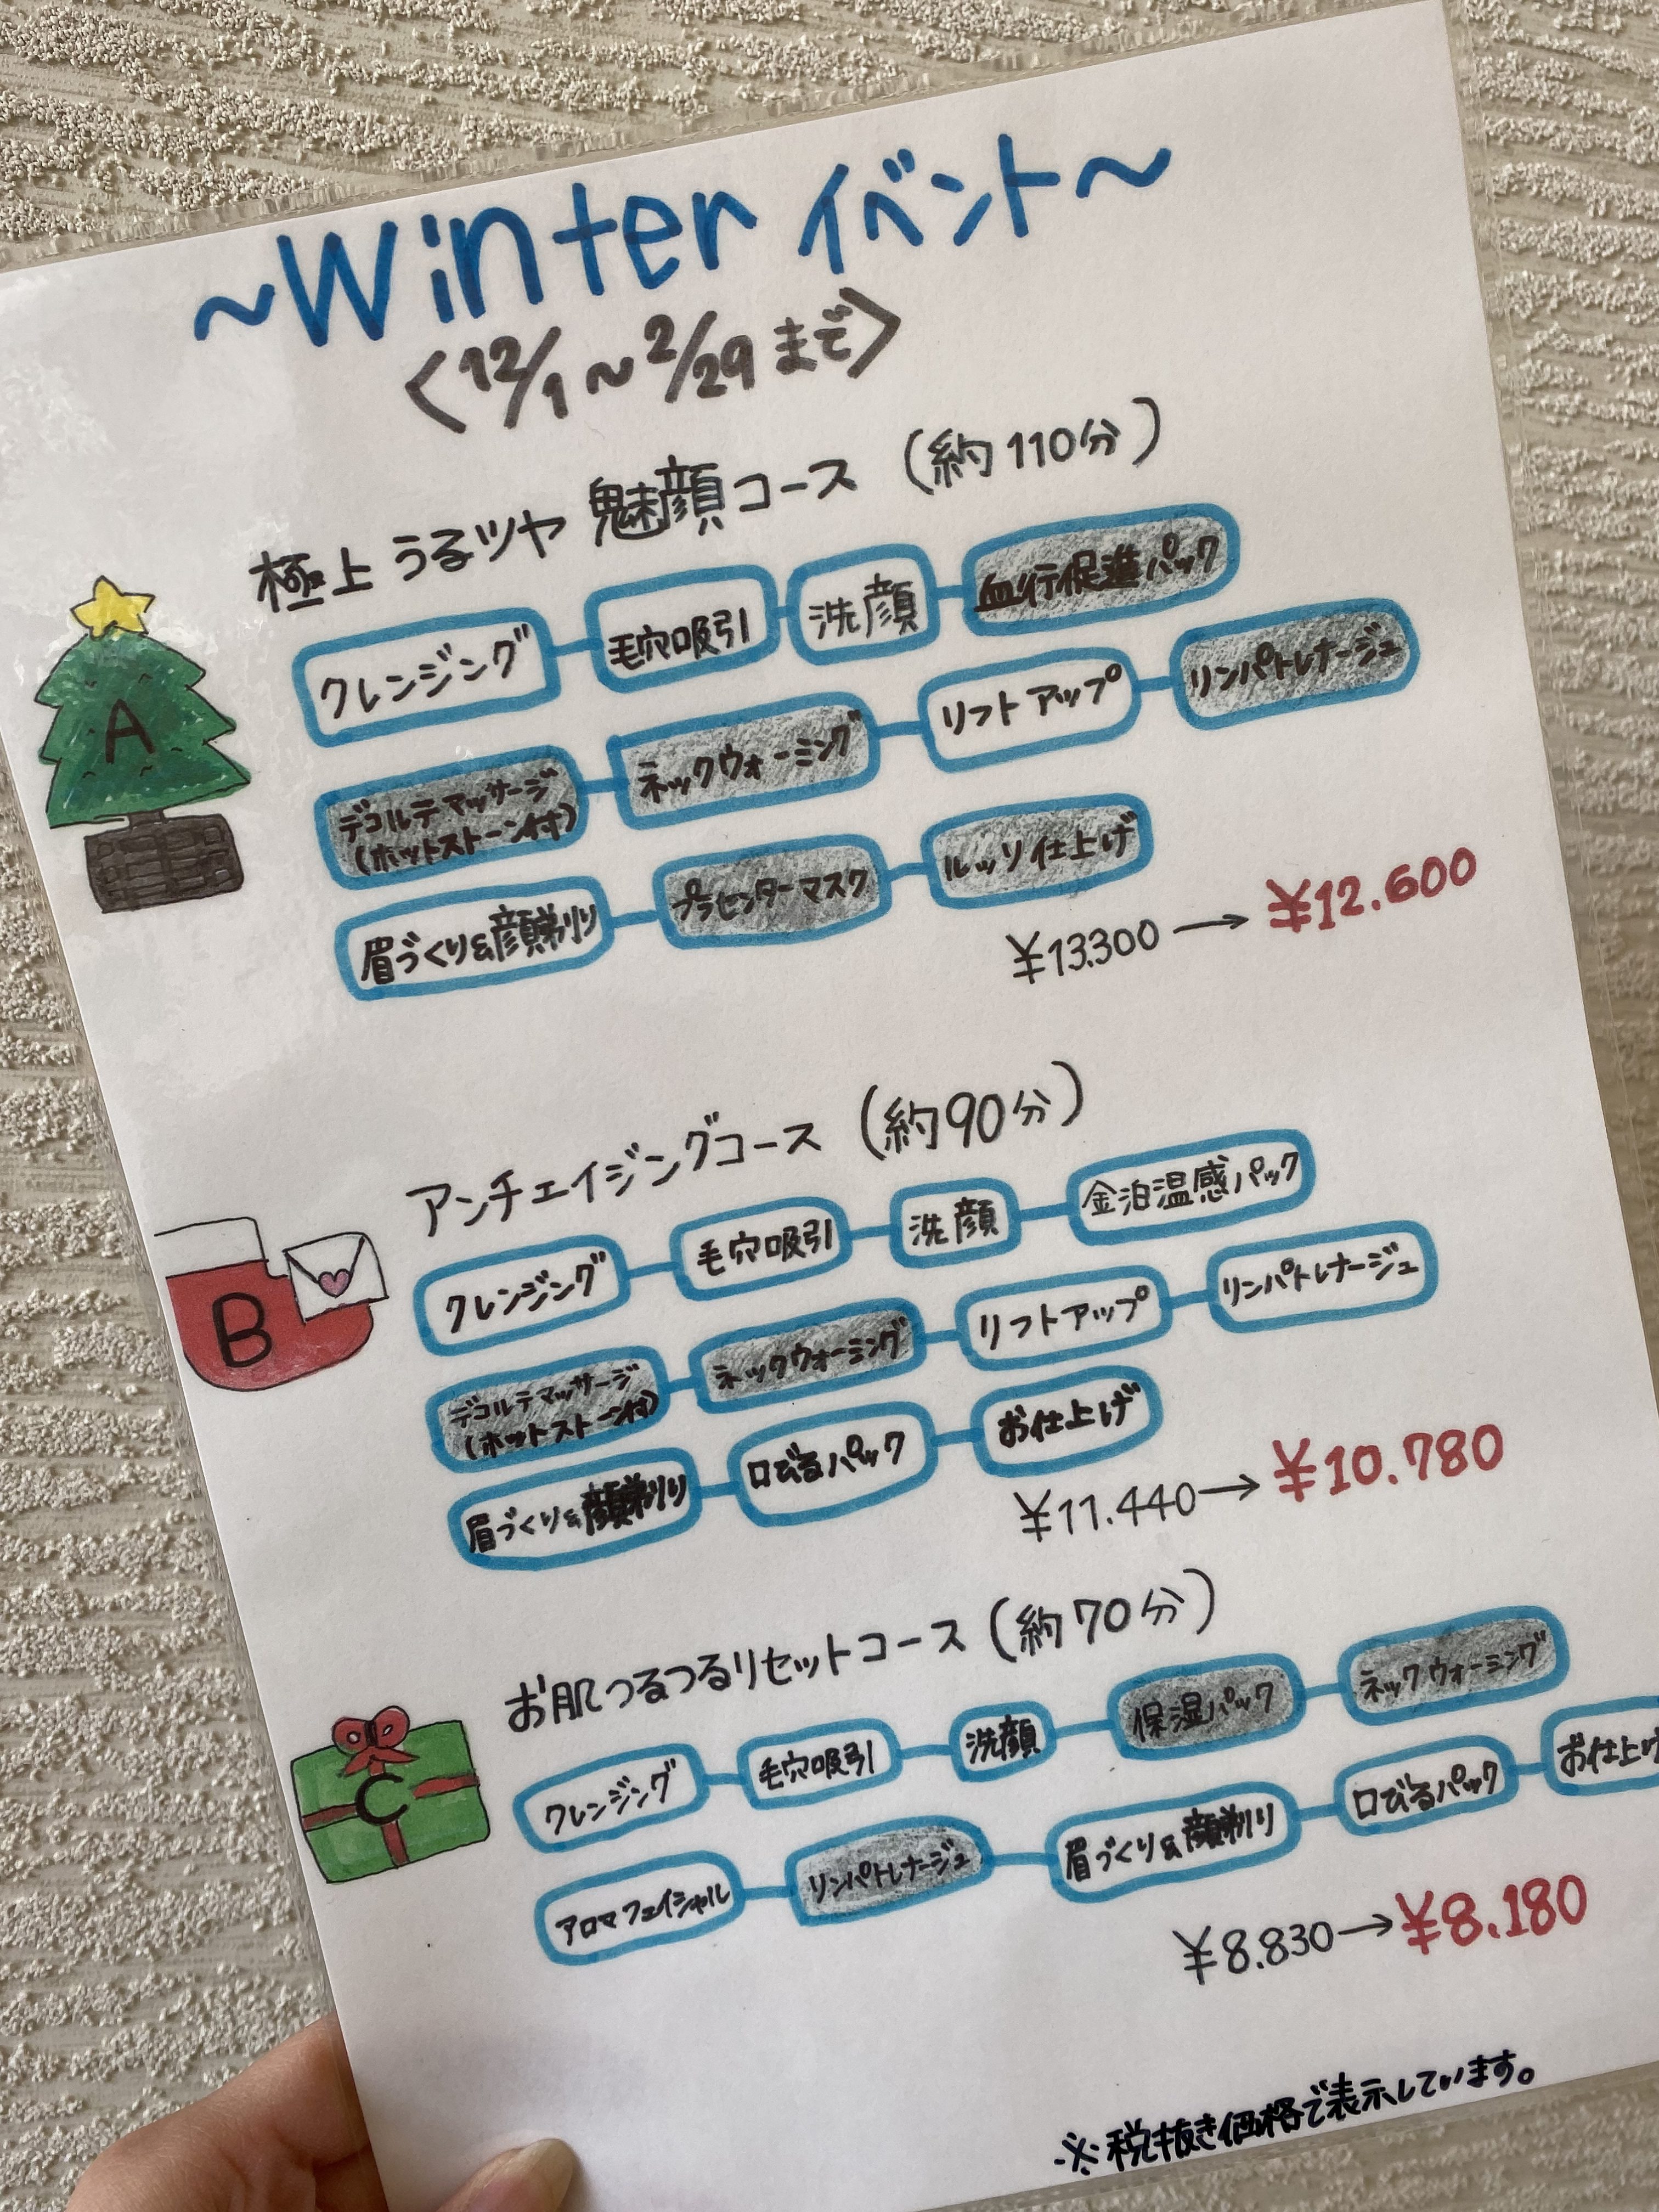 ～Winter イベント～
＜12/1～2/29まで＞
極上 うるツヤ 魅顔コース (約110分)
クレンジング 毛穴吸引 洗顔 血行促進パック
A
デコルテマッサージ ネックウォーミング リフトアップ リンパドレナージュ
(ホットストーン付)
眉づくり&顔剃り プラセンターマスク ルッソ仕上げ
¥13.300 → ¥12.600
アンチエイジングコース (約90分)
クレンジング 毛穴吸引 洗顔 金泊温感パック
B
デコルテマッサージ ネックウォーミング リフトアップ リンパドレナージュ
(ホットストーン付)
眉づくり&顔剃り 口びるパック お仕上げ
¥11.440 → ¥10.780
お肌つるつるリセットコース (約70分)
クレンジング 毛穴吸引 洗顔 保湿パック ネックウォーミング
C
アロマフェイシャル リンパドレナージュ 眉づくり&顔剃り 口びるパック お仕上げ
¥8.830 → ¥8.180
※税抜き価格で表示しています。